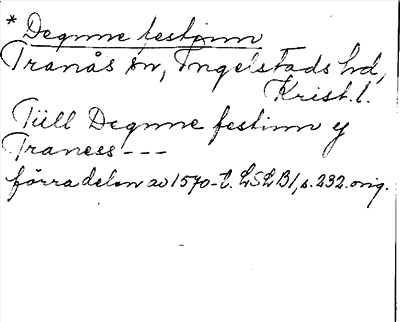 * Degnne festinn
Tranås sn, Ingelstads hd,
Krist.l.
Tüll Degnne festinn y
Traness ---
förra delen av 1570-t. LSLB1, s. 232. orig.